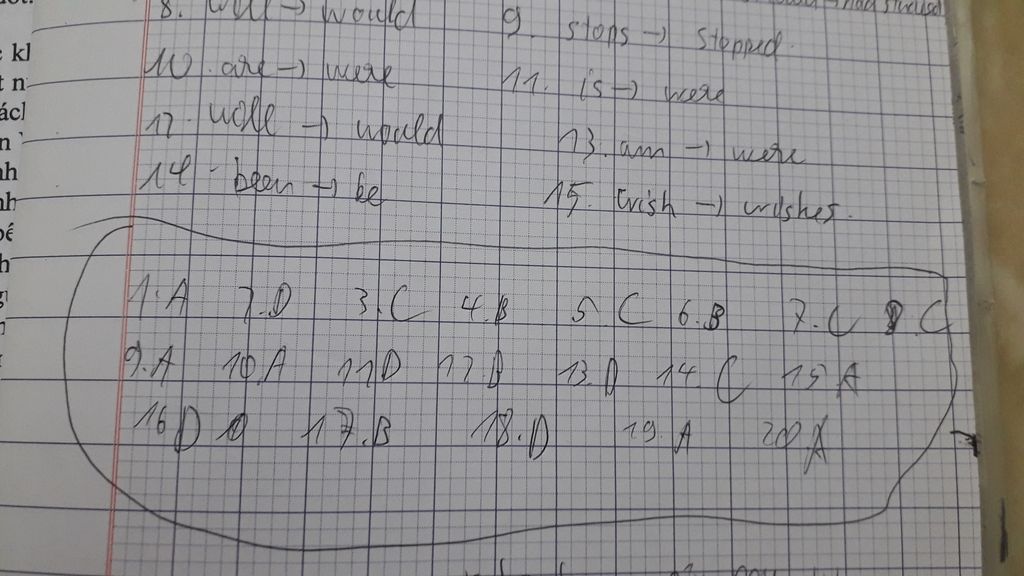 8. will → would 9. stops → stopped.
10. are → were 11. is → were
12. will → would 13. am → were
14. been → be 15. wish → wishes.
1. A 2. D 3. C 4. B 5. C 6. B 7. C 8 C
9. A 10 A 11 D 12. B 13. D 14. C 15 A
16 D 17. B 18. D 19. A 20 A